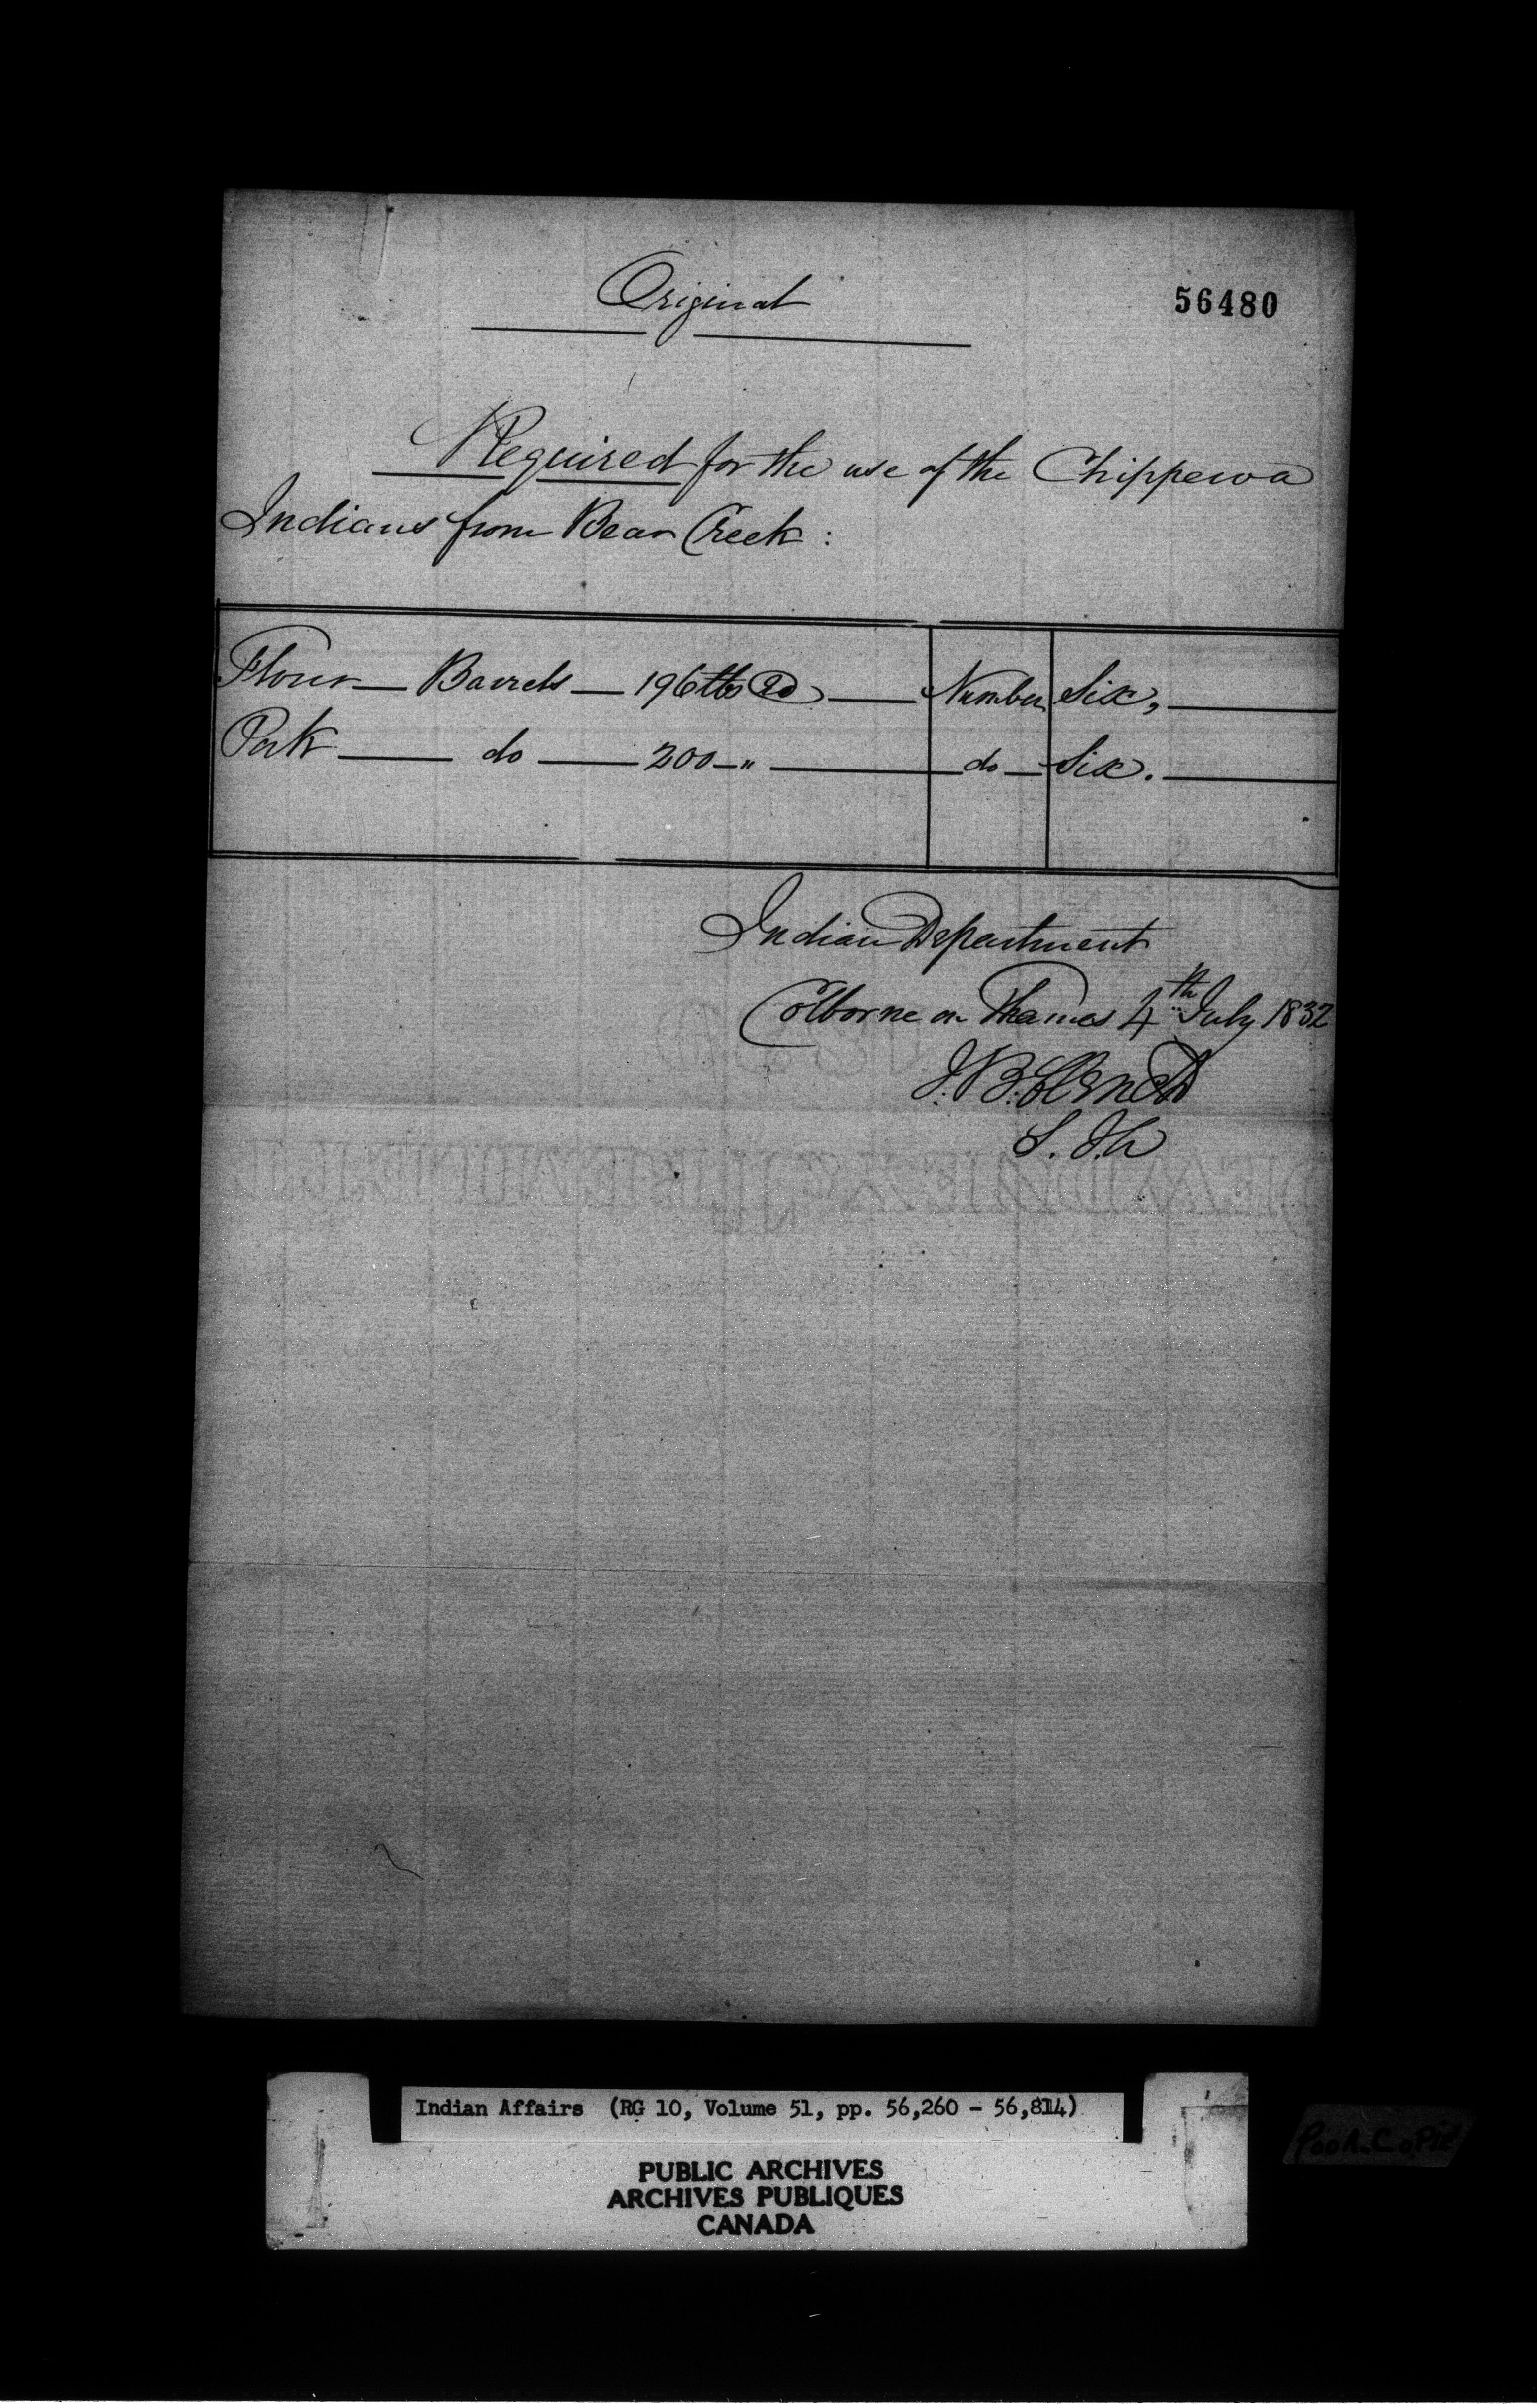 Original
56480
Required for the use of the Chippewa
Indians from Bear Creek :
Flour — Barrels — 196 lbs Ea — Number Six,
Pork — do — 200 — " — do — Six.
Indian Department
Colborne on Thames 4th July 1832
J. B. Clench
S. I. A
Indian Affairs (RG 10, Volume 51, pp. 56,260 - 56,814)
PUBLIC ARCHIVES
ARCHIVES PUBLIQUES
CANADA
POOR COPIE